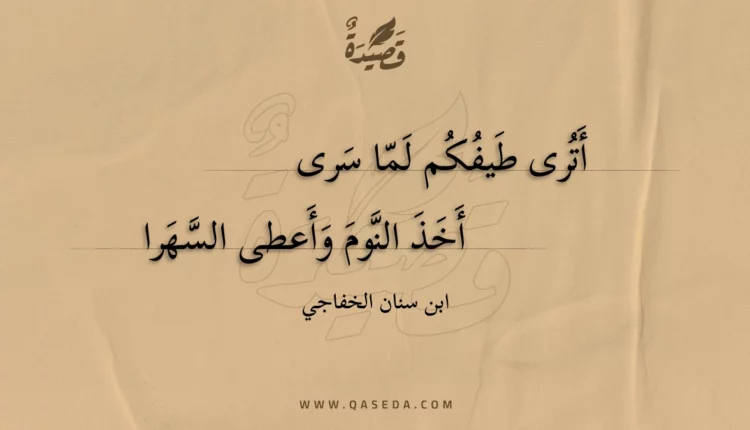 قَصِيدَةٌ
أَتُرى طَيفُكُم لَمّا سَرى
أَخَذَ النَّومَ وَأَعطى السَّهَرا
ابن سنان الخفاجي
WWW.QASEDA.COM